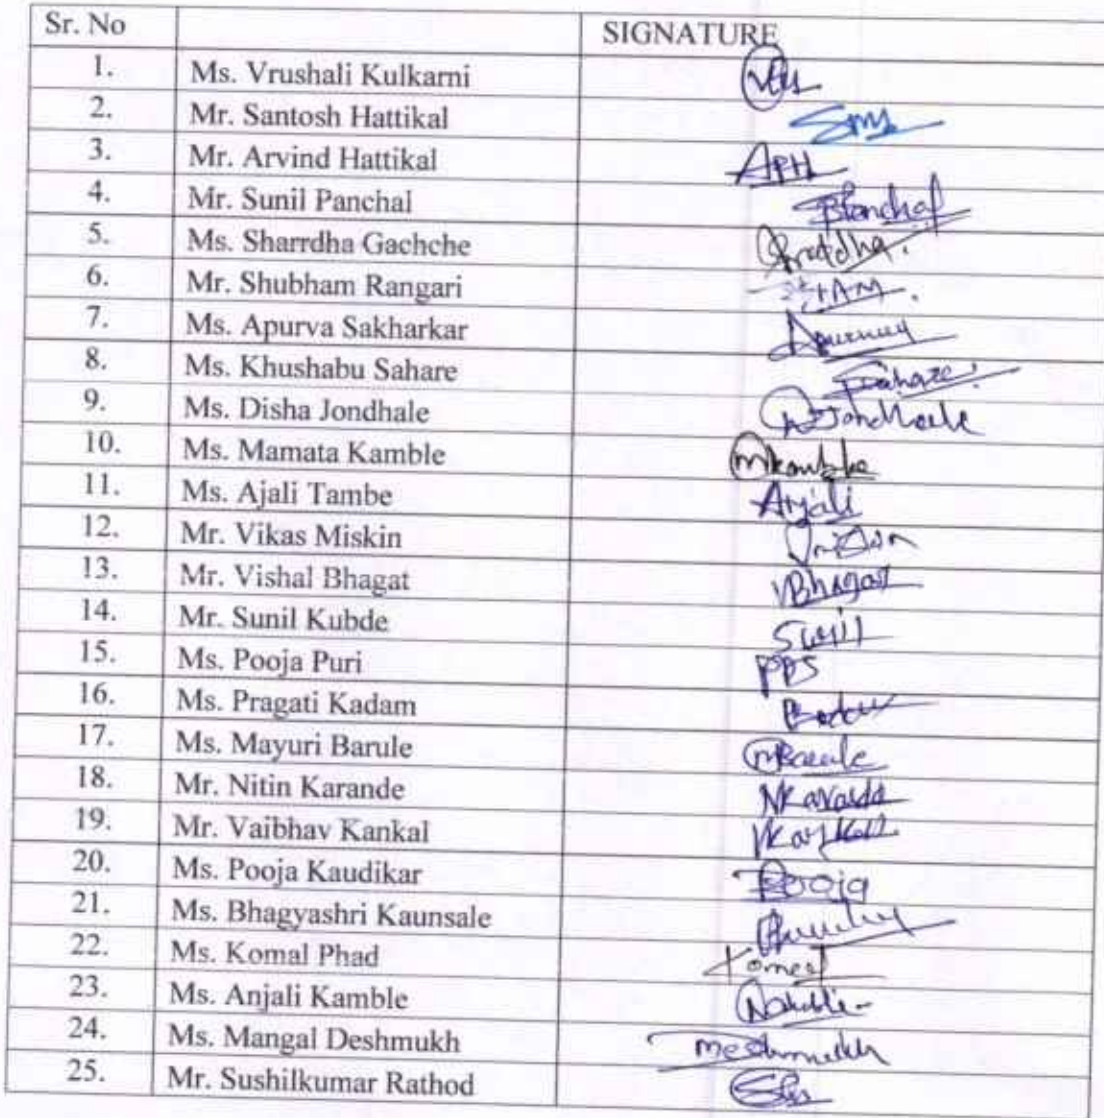 Sr. No SIGNATURE
1. Ms. Vrushali Kulkarni
2. Mr. Santosh Hattikal
3. Mr. Arvind Hattikal APH
4. Mr. Sunil Panchal
5. Ms. Sharrdha Gachche
6. Mr. Shubham Rangari
7. Ms. Apurva Sakharkar
8. Ms. Khushabu Sahare
9. Ms. Disha Jondhale
10. Ms. Mamata Kamble
11. Ms. Ajali Tambe Anjali
12. Mr. Vikas Miskin
13. Mr. Vishal Bhagat VBhagat
14. Mr. Sunil Kubde Sunil
15. Ms. Pooja Puri PPS
16. Ms. Pragati Kadam
17. Ms. Mayuri Barule MBarule
18. Mr. Nitin Karande
19. Mr. Vaibhav Kankal
20. Ms. Pooja Kaudikar Pooja
21. Ms. Bhagyashri Kaunsale
22. Ms. Komal Phad
23. Ms. Anjali Kamble
24. Ms. Mangal Deshmukh
25. Mr. Sushilkumar Rathod